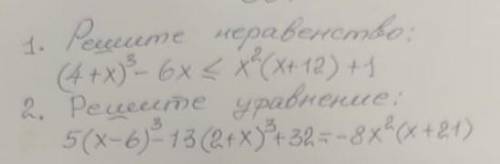 1. Решите неравенство:
(4+x)³ - 6x ≤ x²(x+12)+1
2. Решите уравнение:
5(x-6)³-13(2+x)³+32=-8x²(x+21)